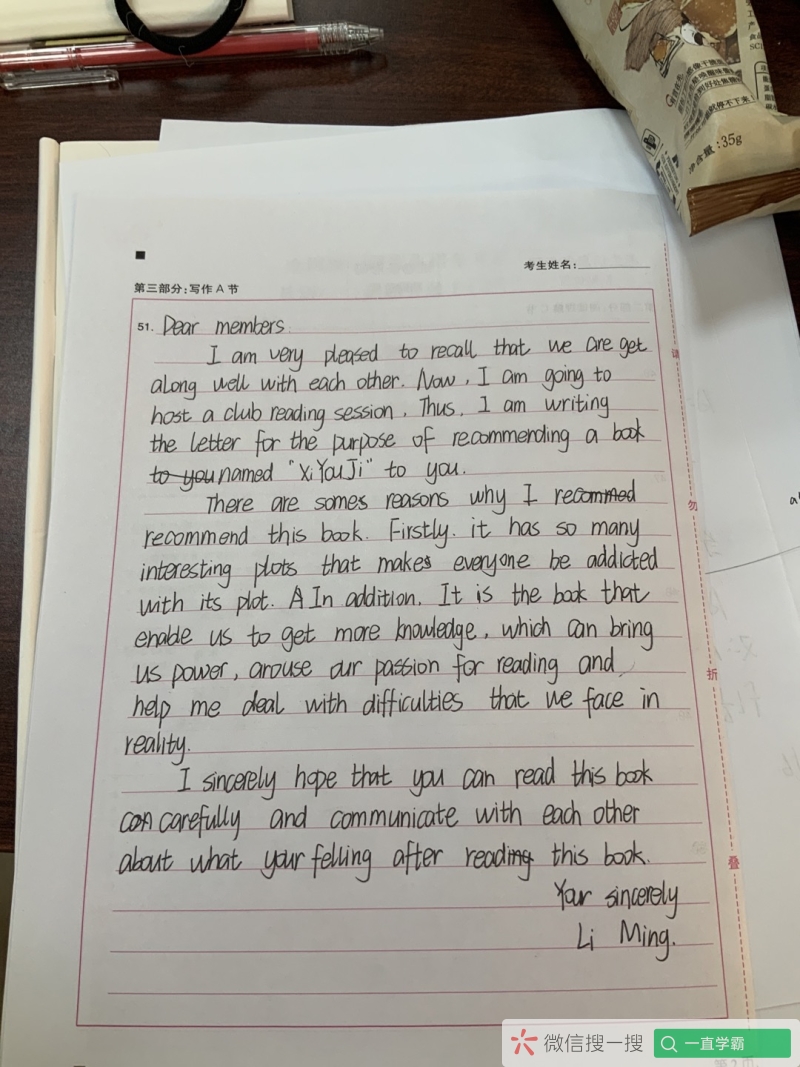 净含量:35g
考生姓名:
第三部分:写作 A 节
51. Dear members.
I am very pleased to recall that we are get
along well with each other. Now, I am going to
host a club reading session. Thus, I am writing
the letter for the purpose of recommending a book
to you named "XiYouJi" to you.
There are somes reasons why I recommed
recommend this book. Firstly. it has so many
interesting plots that makes everyone be addicted
with its plot. A In addition. It is the book that
enable us to get more knowledge, which can bring
us power, arouse our passion for reading and
help me deal with difficulties that we face in
reality.
I sincerely hope that you can read this book
can carefully and communicate with each other
about what your felling after reading this book.
Your sincerely
Li Ming.
请
勿
折
叠
微信搜一搜
一直学霸